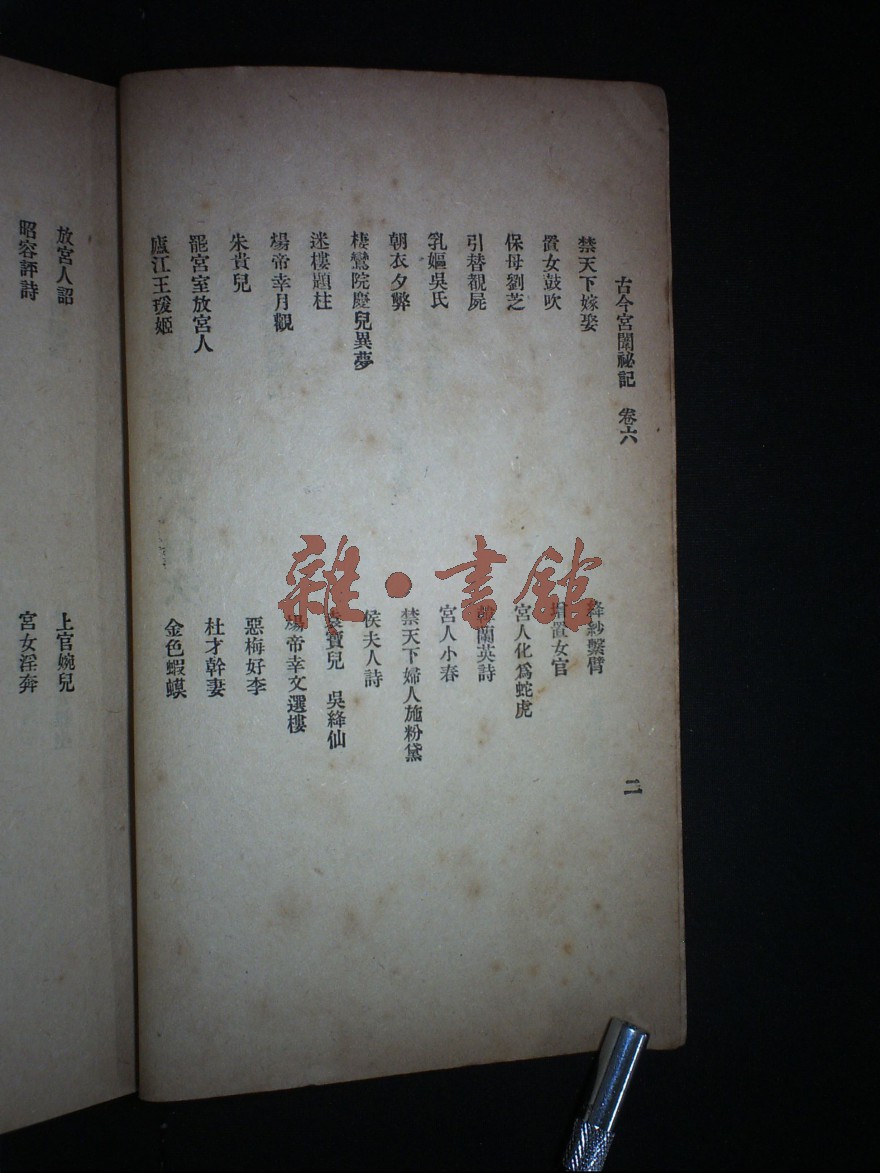 古今宮闈祕記 卷六
二
禁天下嫁娶
絳紗繫臂
置女鼓吹
增置女官
保母劉芝
宮人化爲蛇虎
引替覩屍
韓蘭英詩
乳嫗吳氏
宮人小春
朝衣夕弊
禁天下婦人施粉黛
棲鸞院慶兒異夢
侯夫人詩
迷樓題柱
袁寶兒 吳絳仙
煬帝幸月觀
煬帝幸文選樓
朱貴兒
惡梅好李
罷宮室放宮人
杜才幹妻
廬江王瑗姬
金色蝦蟆
放宮人詔
上官婉兒
昭容評詩
宮女淫奔
雜·書館